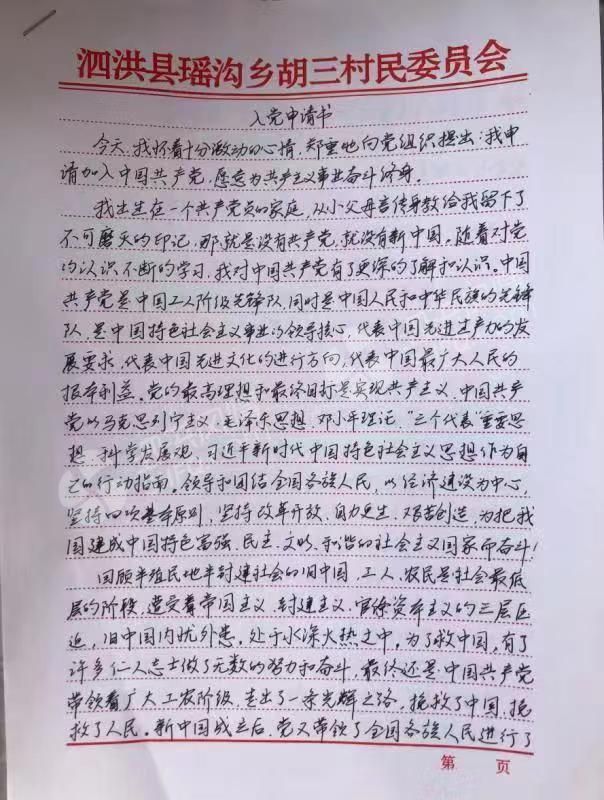 泗洪县瑶沟乡胡三村民委员会
入党申请书
今天,我怀着十分激动的心情,郑重地向党组织提出:我申
请加入中国共产党,愿意为共产主义事业奋斗终身。
我出生在一个共产党员的家庭,从小父母言传身教给我留下了
不可磨灭的印记,那就是没有共产党,就没有新中国。随着对党
的认识不断的学习,我对中国共产党有了更深的了解和认识。中国
共产党是中国工人阶级先锋队,同时是中国人民和中华民族的先锋
队,是中国特色社会主义事业的领导核心,代表中国先进生产力的发
展要求,代表中国先进文化的进行方向,代表中国最广大人民的
根本利益。党的最高理想和最终目标是实现共产主义。中国共产
党以马克思列宁主义、毛泽东思想、邓小平理论、“三个代表”重要思
想、科学发展观、习近平新时代中国特色社会主义思想作为自
己的行动指南。领导和团结全国各族人民,以经济建设为中心,
坚持四项基本原则,坚持改革开放,自力更生,艰苦创造,为把我
国建成中国特色富强、民主、文明、和谐的社会主义国家而奋斗!
回顾半殖民地半封建社会的旧中国,工人、农民是社会最低
层的阶段,遭受着帝国主义、封建主义、官僚资本主义的三层压
迫,旧中国内忧外患,处于水深火热之中。为了救中国,有了
许多仁人志士做了无数的努力和奋斗,最终还是中国共产党
带领着广大工农阶级,走出了一条光辉之路,挽救了中国,挽
救了人民。新中国成立后,党又带领了全国各族人民进行了
第 页